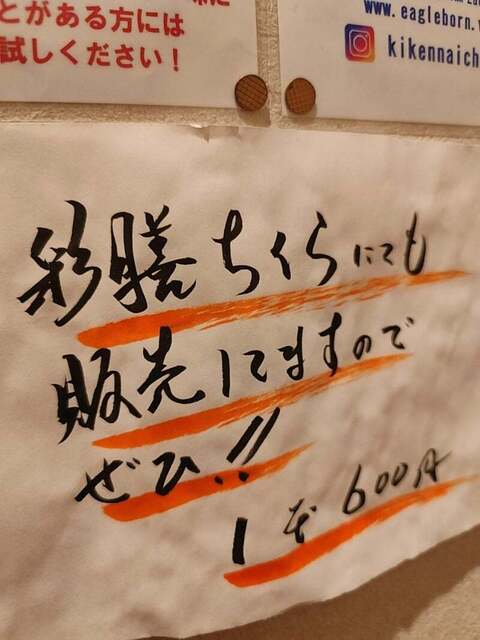 とがある方には
試しください！
www.eagleborn.
kikennaich
彩膳ちくらにても
販売してますので
ぜひ!!
1本 600円